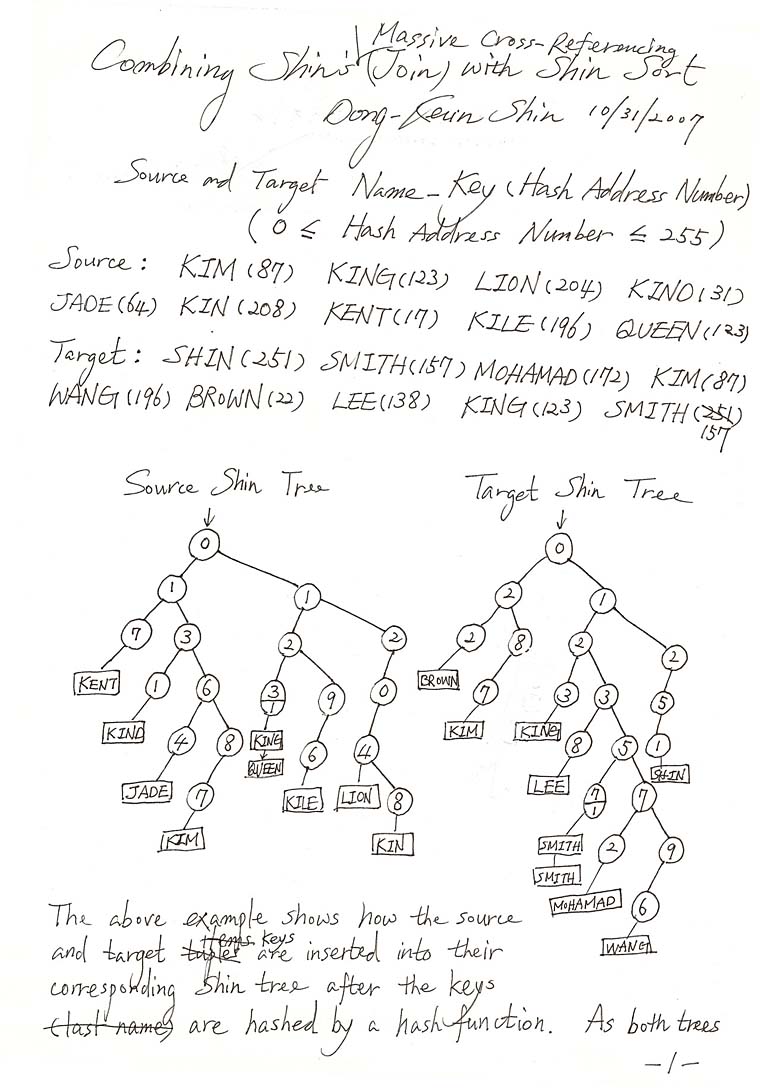 Massive Cross-Referencing
Combining Shin's (Join) with Shin Sort
Dong-Keun Shin 10/31/2007
Source and Target Name-Key (Hash Address Number)
(0 ≤ Hash Address Number ≤ 255)
Source: KIM (87) KING(123) LION(204) KIND(31)
JADE(64) KIN (208) KENT(17) KILE(196) QUEEN(123)
Target: SHIN(251) SMITH(157) MOHAMAD(172) KIM(87)
WANG(196) BROWN(22) LEE(138) KING(123) SMITH(251)
157
Source Shin Tree Target Shin Tree
0 0
1 1 2 1
7 3 2 2 2 8 2 2
KENT 1 6 3/1 9 0 BROWN 7 3 3 5
KIND 4 8 KING 6 4 KIM KING 8 5 1
QUEEN SHIN
JADE 7 KILE LION 8 LEE 7/1 7
KIM KIN SMITH 2 9
SMITH
MOHAMAD 6
WANG
The above example shows how the source
items keys
and target tuples are inserted into their
corresponding Shin tree after the keys
(last name) are hashed by a hash function. As both trees
-1-